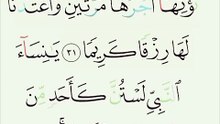 نُّؤۡتِهَآ أَجۡرَهَا مَرَّتَيۡنِ وَأَعۡتَدۡنَا
لَهَا رِزۡقٗا كَرِيمٗا ٣١ يَٰنِسَآءَ
ٱلنَّبِيِّ لَسۡتُنَّ كَأَحَدٖ مِّنَ